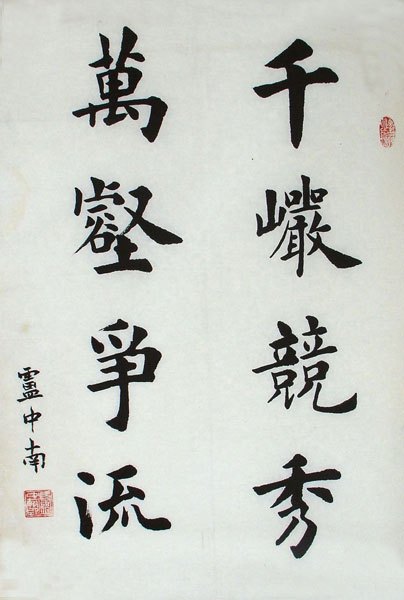 千巗競秀
萬壑爭流
盧中南